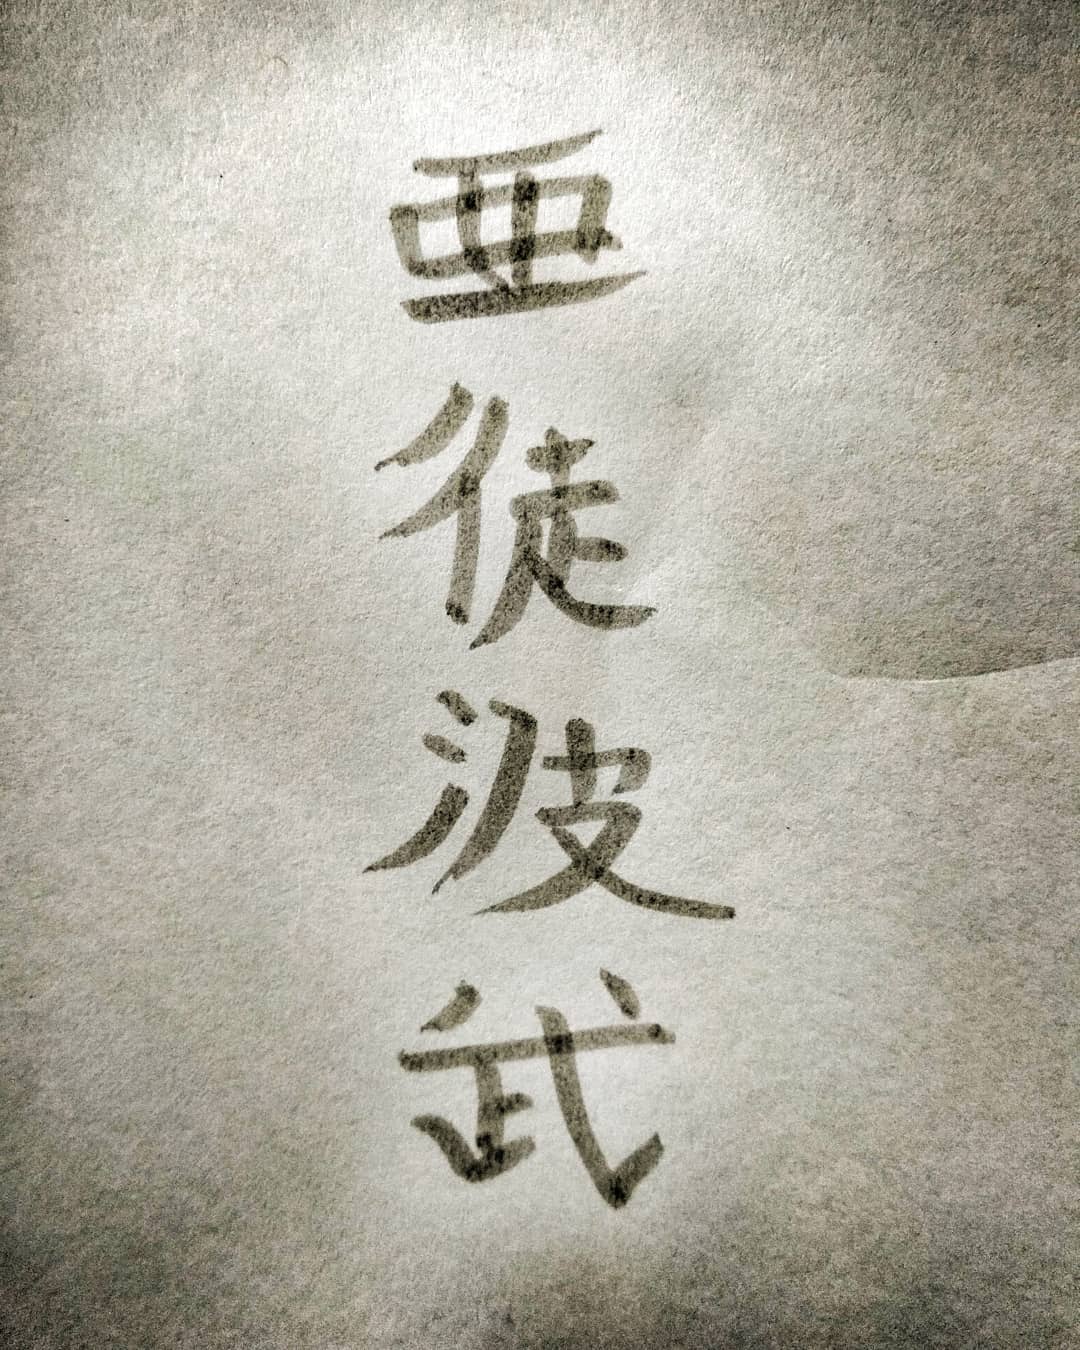 亜徒波武